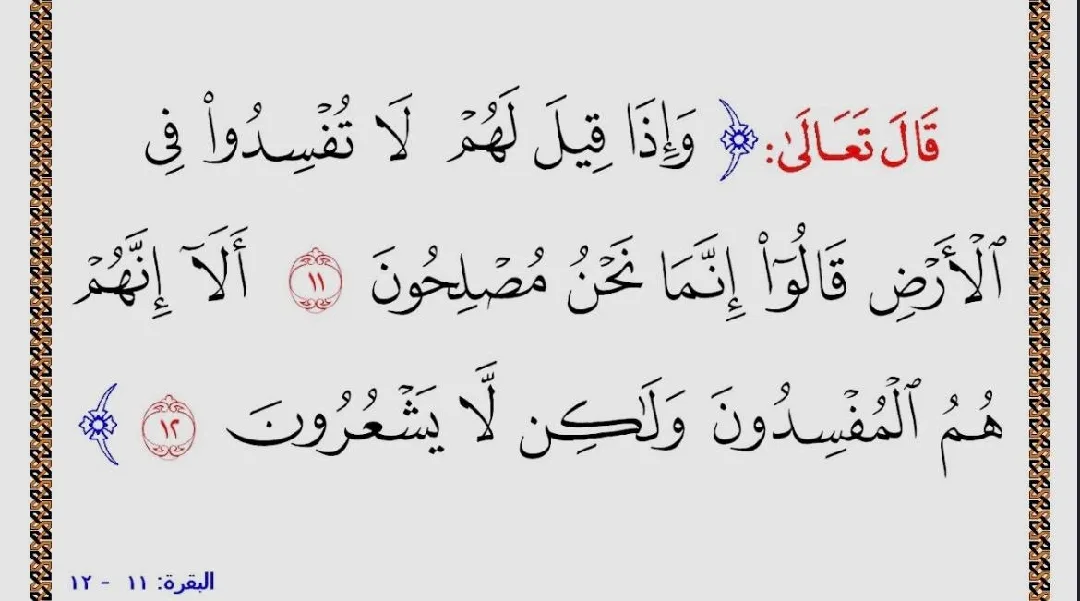 قَالَ تَعَالَىٰ: ﴿ وَإِذَا قِيلَ لَهُمْ لَا تُفْسِدُوا۟ فِى
ٱلْأَرْضِ قَالُوٓا۟ إِنَّمَا نَحْنُ مُصْلِحُونَ ١١ أَلَآ إِنَّهُمْ
هُمُ ٱلْمُفْسِدُونَ وَلَـٰكِن لَّا يَشْعُرُونَ ١٢ ﴾
البقرة: ١١ - ١٢